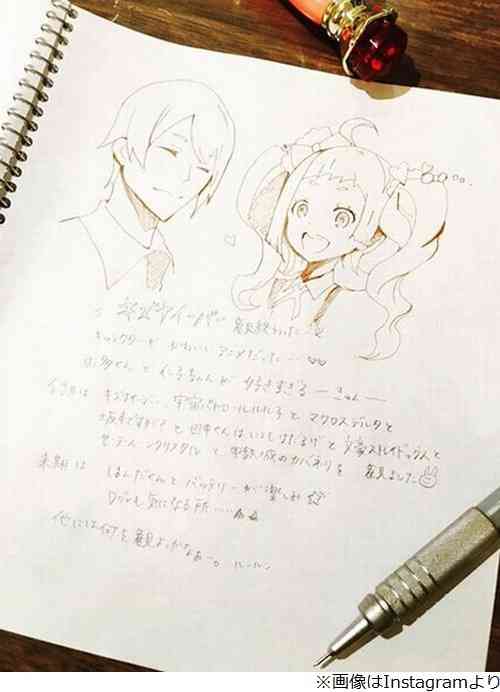 キズナイーバー 観終わった…
キャラクターが かわいい アニメだった…♡♡
が 好きすぎる ー きゅんー
今期は キズナイーバー、宇宙パトロールルル子と マクロスデルタと
坂本ですが?と 田中くんはいつもけだるげと 文豪ストレイドッグスと
と 甲鉄城のカバネリを 観ました
来期は はんだくんと バッテリーが楽しみ
も気になる所……
他には何を観よっかなぁー。ルールン♪
※画像はInstagramより